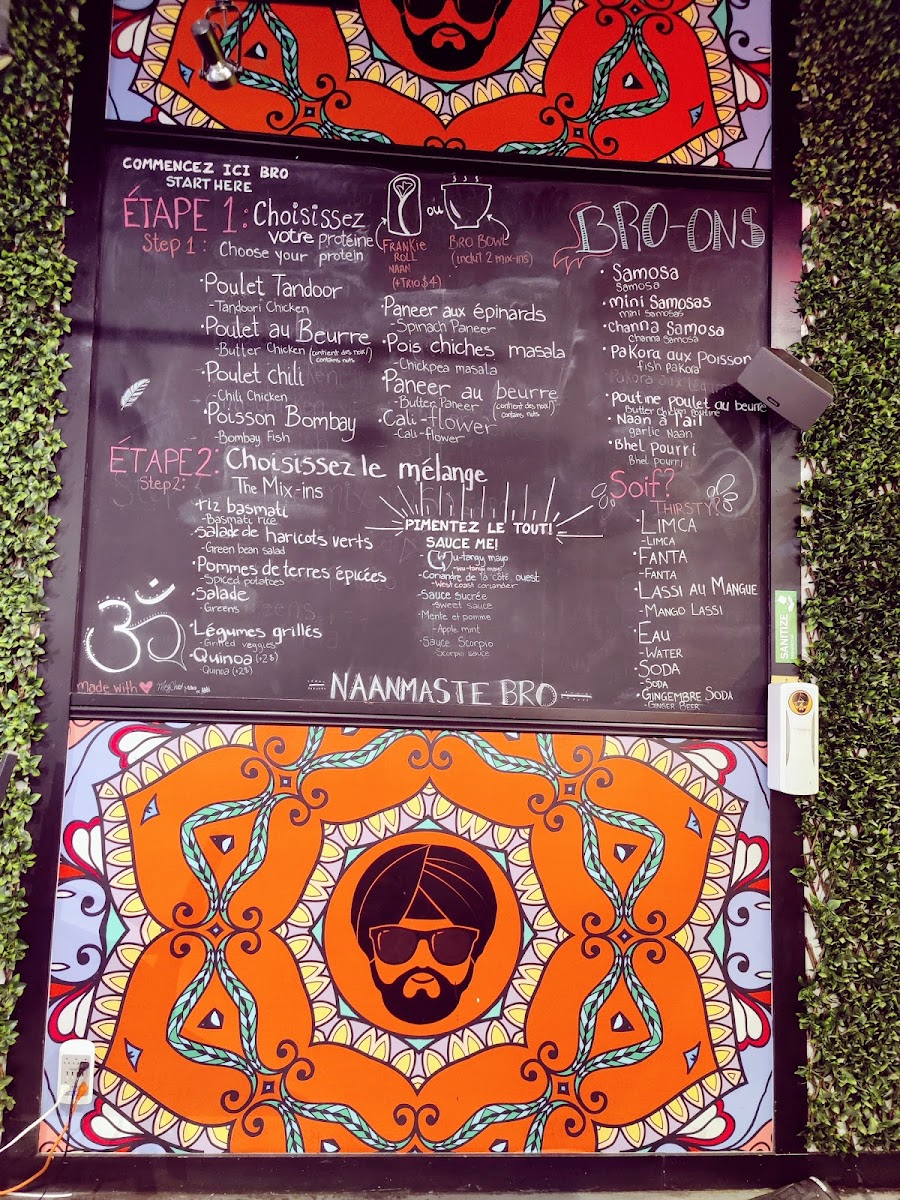 COMMENCEZ ICI BRO
START HERE
ÉTAPE 1: Choisissez
votre protéine
Step 1: Choose your protein
ou
FRANKIE
ROLL
NAAN
(+TRIO $4)
BRO BOWL
(inclut 2 mix-ins)
• Poulet Tandoor
- Tandouri Chicken
• Poulet au Beurre
- Butter Chicken (contient des noix!)
contains nuts
• Poulet chili
- Chili Chicken
• Poisson Bombay
- Bombay Fish
• Paneer aux épinards
- Spinach Paneer
• Pois chiches masala
- Chickpea masala
• Paneer au beurre
- Butter Paneer (contient des noix!)
contains nuts
• Cali-flower
- Cali-flower
ÉTAPE 2: Choisissez le mélange
Step 2: The Mix-ins
• riz basmati
- Basmati rice
• salade de haricots verts
- Green bean salad
• Pommes de terres épicées
- Spiced potatoes
• Salade
- Greens
• Légumes grillés
- Grilled veggies
• Quinoa (+2$)
- Quinoa (+2$)
PIMENTEZ LE TOUT!
SAUCE ME!
- Wu-tangy mayo
- wu-tangy mayo
- Coriandre de la côté ouest
- West coast coriander
- Sauce sucrée
- Sweet sauce
- Mente et pomme
- Apple mint
- Sauce Scorpio
- Scorpio sauce
BRO-ONS
• Samosa
Samosa
• mini Samosas
mini samosas
• channa Samosa
channa Samosa
• Pakora aux poisson
fish pakora
Pakora aux légu
• Poutine poulet au beurre
Butter chicken poutine
• Naan à l'ail
garlic Naan
• Bhel pourri
Bhel pourri
Soif?
THIRSTY?
• LIMCA
- LIMCA
• FANTA
- FANTA
• LASSI AU MANGUE
- MANGO LASSI
• EAU
- WATER
• SODA
- SODA
• GINGEMBRE SODA
- GINGER BEER
ॐ
made with ❤
NAANMASTE BRO
SANITIZE